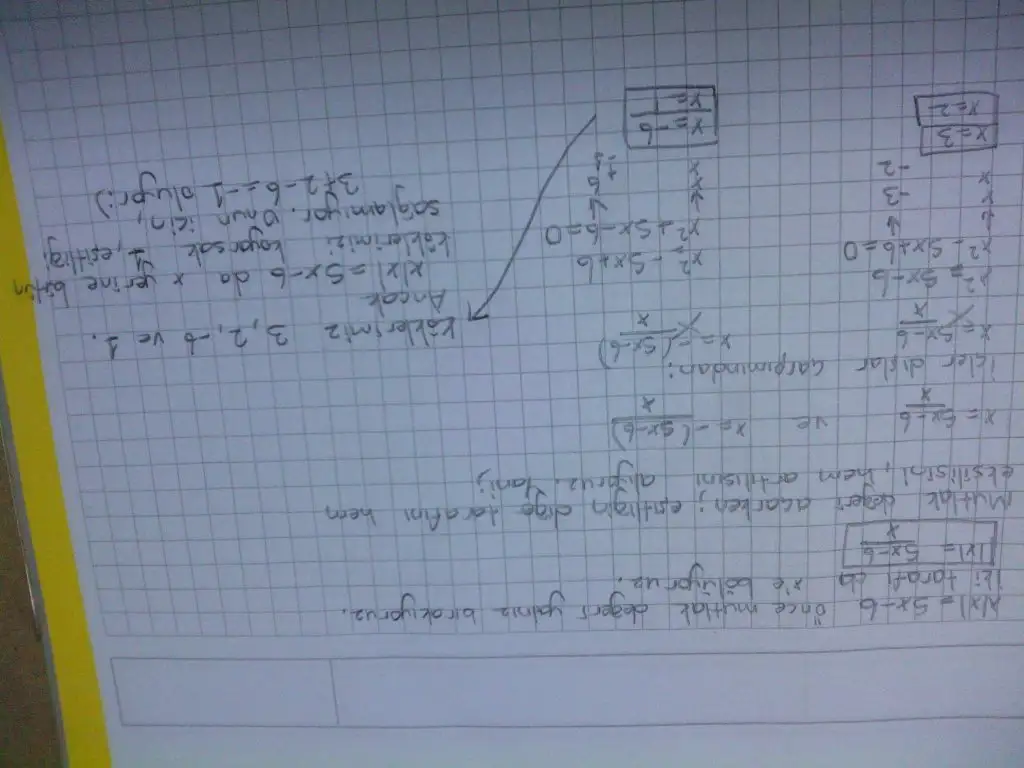 x|x| = 5x-6 Önce mutlak değeri yalnız bırakıyoruz.
İki tarafı da x'e bölüyoruz.
|x| = 5x-6/x
Mutlak değeri açarken; eşitliğin diğe tarafını hem
eksilisini, hem artılısını alıyoruz. Yani;
x = 5x-6/x ve x = -(5x-6/x)
İçler dışlar çarpımından:
x = 5x-6/x x = -(5x-6/x)
x² = 5x-6 x² = -5x+6
x² - 5x+6=0 x² + 5x-6=0
↓ ↓ ↓ ↓
x -3 x 6
x -2 x -1
x=3 x=-6
x=2 x=1
Köklerimiz 3, 2, -6 ve 1.
Ancak
x|x| = 5x-6 da x yerine bütün
köklerimizi koyarsak 1, eşitliği
sağlamıyor. Onun için,
3+2-6=-1 oluyor:)